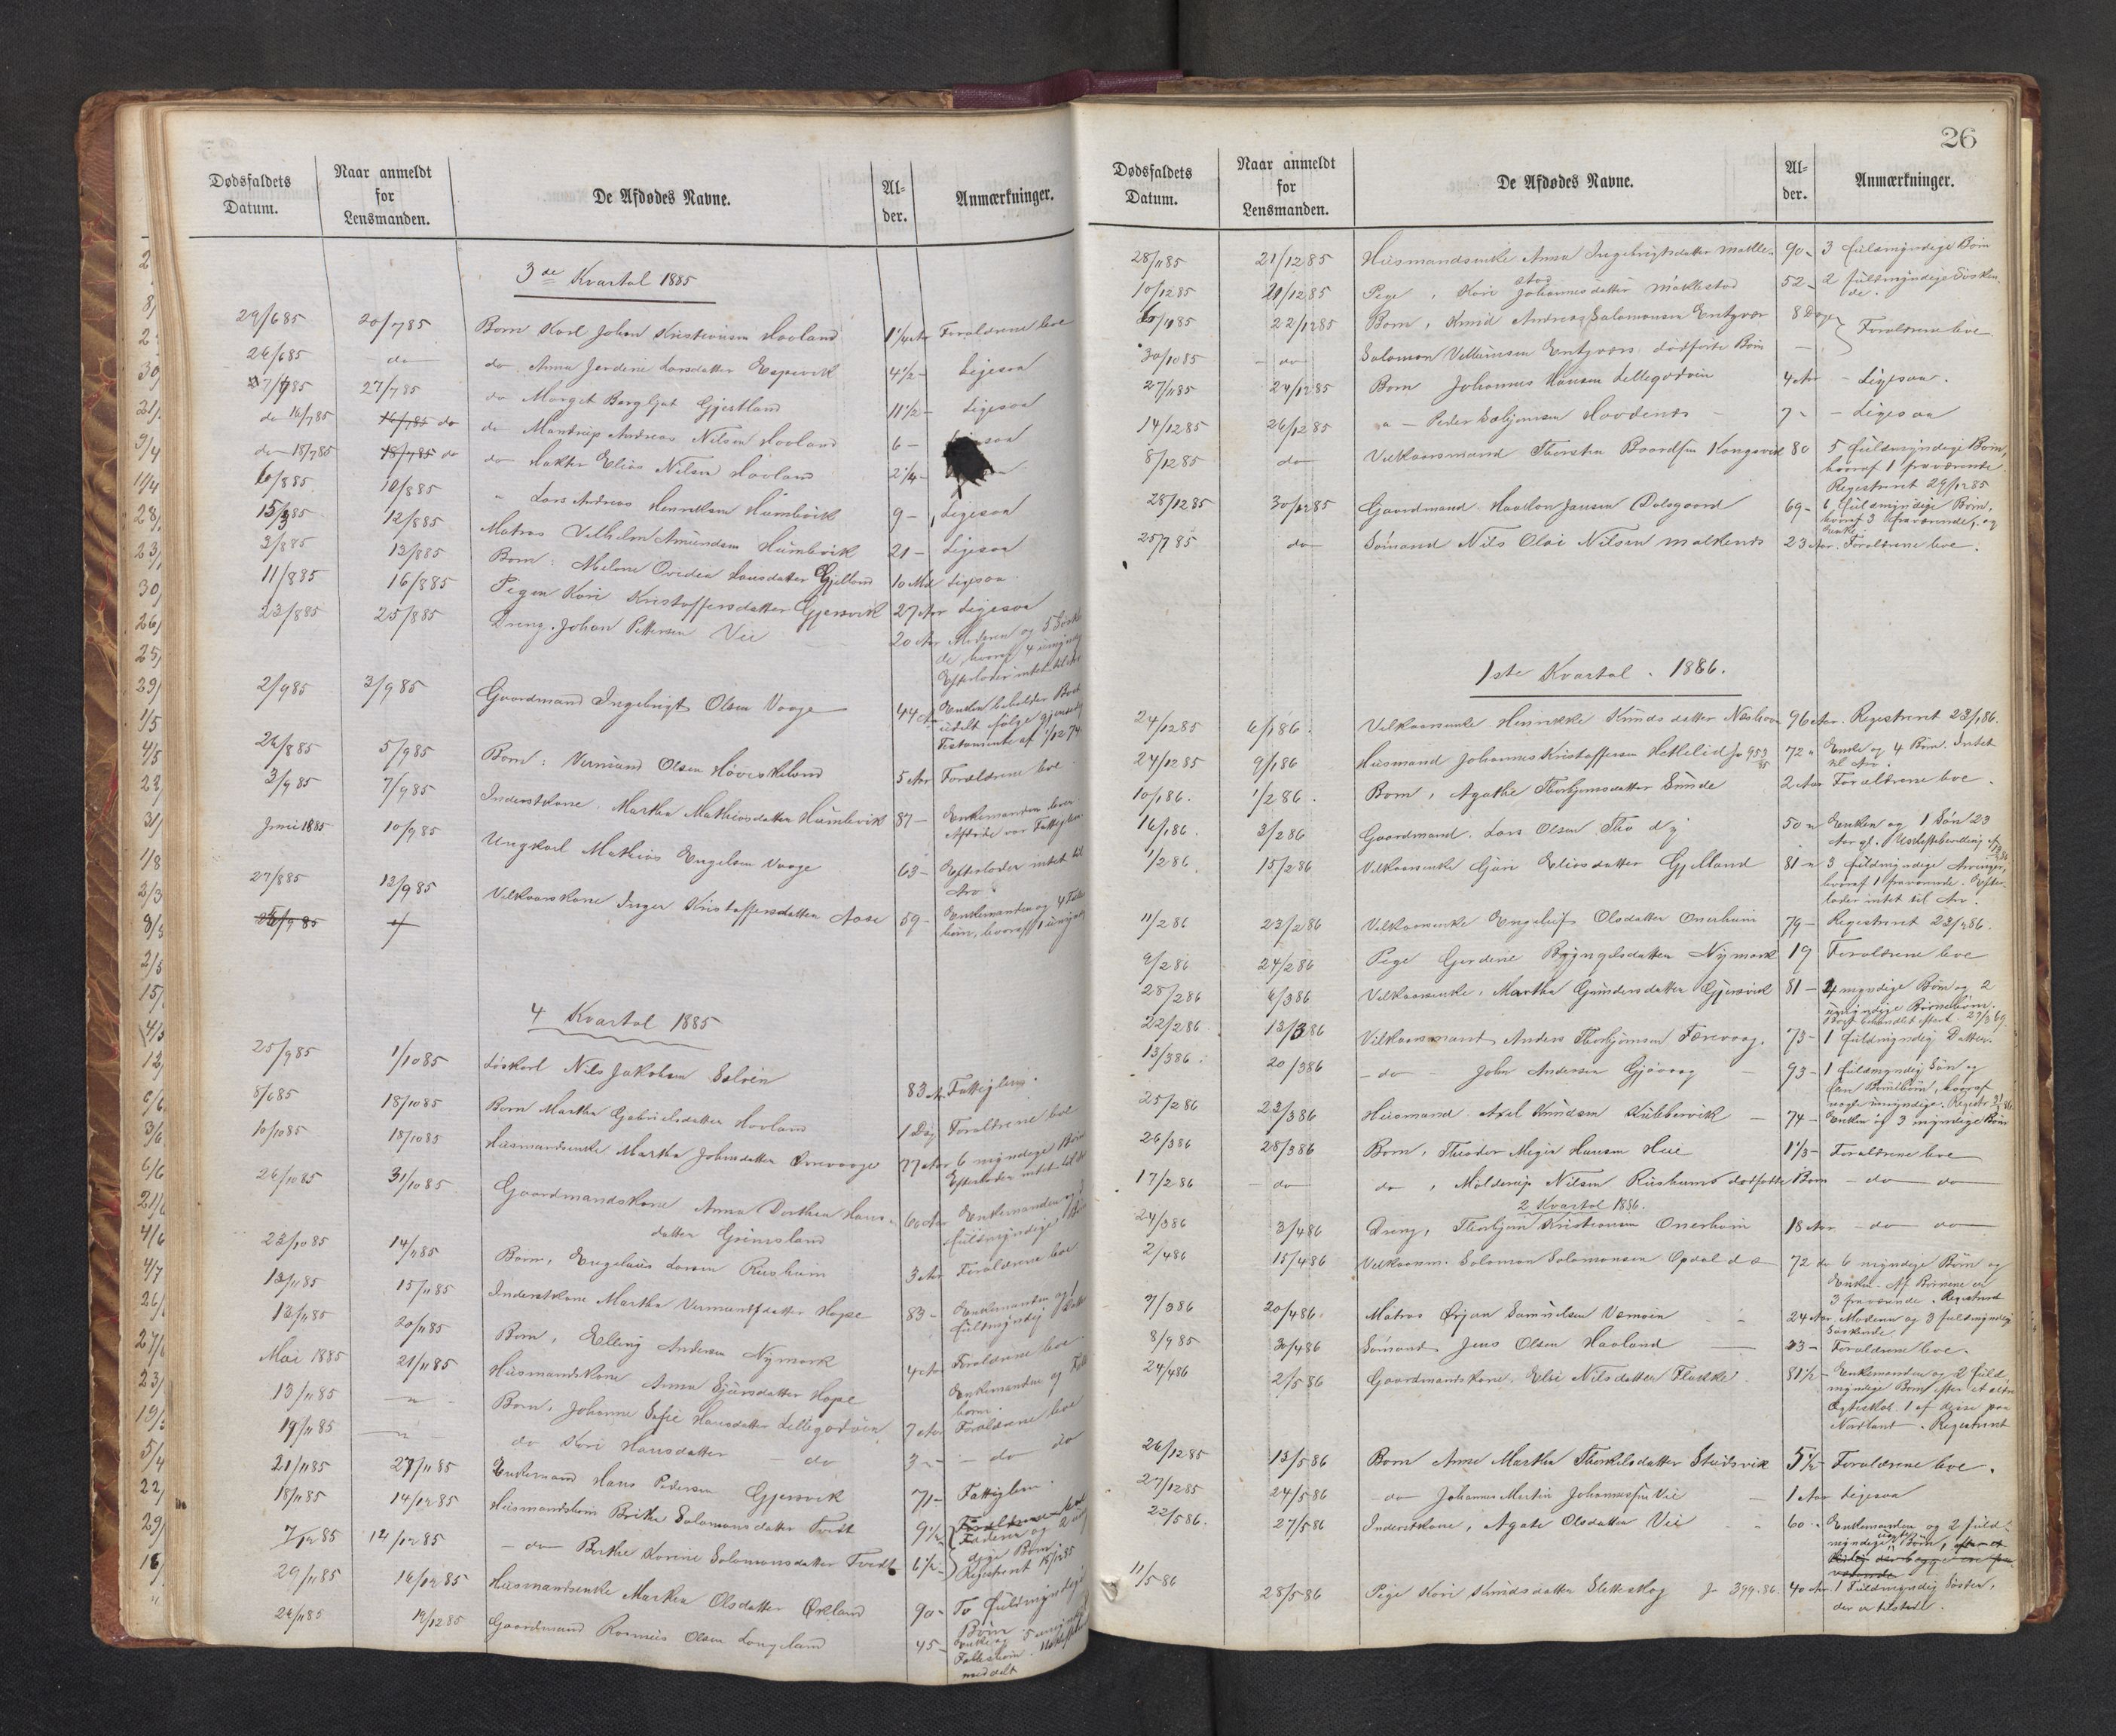 Dødsfaldets Datum. Naar anmeldt for Lensmanden. De Afdødes Navne. Al-der. Anmærkninger.
3de Kvartal 1885
29/6 85 20/7 85 Barn Karl Johan Kristiansen Haaland 1 1/4 Aar Forældrene leve
26/6 85 do do Anna Jordine Larsdatter Espevik 4 1/2 - Ligesaa
27/7 85 do Marget Bergljot Gjertland 11 1/2 - Ligesaa
do 16/7 85 do do Mandrup Andreas Nilsen Haaland 6 -
do 18/7 85 do do Hakter Elias Nilsen Haaland 2 1/4 -
6/8 85 10/8 85 " Lars Andreas Henriksen Humlevik 9 - Ligesaa
12/8 85 Matros Vilhelm Amundsen Humlevik 21 - Ligesaa
3/8 85 13/8 85 Barn: Abelone Ovedea Hansdatter Gjelland 10 Md Ligesaa
11/8 85 16/8 85 Pigen Kari Kristoffersdatter Gjersvik 27 Aar Ligesaa
23/8 85 25/8 85 Dreng. Johan Pettersen Vie 20 Aar Moderen og 5 Søsken
de, hvoraf 4 umyndige
Efterlader intet til Arv
2/9 85 3/9 85 Gaardmand Ingebrigt Olsen Vaage 44 Aar Enken beholder Boet
udelt følge gjensidig
Testamente af 1/12 74
26/8 85 5/9 85 Barn: Vermund Olsen Høviskeland 5 Aar Forældrene leve
3/9 85 7/9 85 Inderstkone Martha Mathiasdatter Humlevik 87 - Enkemanden lever
Afdøde var Fattiglem
Juni 1885 10/9 85 Ungkarl Mathias Engelsen Vaage 63 - Efterlader intet til
Arv
27/8 85 13/9 85 Vilkaarskone Inger Kristoffersdatter Aase 59 - Enkemanden og 4 Fælles
børn, hvoraf 1 umyndig
4 Kvartal 1885
25/9 85 1/10 85 Løskarl Nils Jakobsen Salvin 83 A. Fattiglem.
8/6 85 18/10 85 Barn Martha Gabrielsdatter Haaland 1 Dag Forældrene leve
10/10 85 18/10 85 Husmandsenke Martha Johnsdatter 77 Aar 6 myndige Børn
Efterlader intet til Arv
26/10 85 31/10 85 Gaardmandskone Anna Dorthea Hans- 60 Aar Enkemanden og 3
datter Grimsland fuldmyndige Børn
23/10 85 14/11 85 Barn, Engelaus Larsen Rusheim 3 Aar Forældrene leve
13/11 85 15/11 85 Inderstkone Martha Vermundsdatter Hope 83 - Enkemanden og 1
fuldmyndig Datter
13/11 85 20/11 85 Barn, Elling Andersen Nymark 4 Aar Forældrene leve
Mai 1885 21/11 85 Husmandskone Anna Sjursdatter Hope Enkemanden og Fælles
børn.
13/11 85 " Barn, Johanne Sofie Hansdatter Lillegadvin 7 Aar Forældrene leve
19/11 85 " do Kari Hansdatter do 3 " - do do
21/11 85 27/11 85 Enkemand Hans Pedersen Gjersvik 71 - Fattiglem
18/11 85 14/12 85 Husmandsbarn Brithe Salomonsdatter Tvedt 9 1/2
Faderen og 2
7/12 85 14/12 85 - do - Berthe Karine Salomonsdatter Tvedt 6 1/2 dige Børn
Registreret 18/12 85
29/11 85 16/12 85 Husmandsenke Marken Olsdatter Økland 90 - To fuldmyndige
Børn
24/11 85 19/12 85 Gaardmand Rasmus Olsen Longeland 45 - Enke og 5 umyndige
Fællesbørn.
meddelt
26
Dødsfaldets Datum. Naar anmeldt for Lensmanden. De Afdødes Navne. Al-der. Anmærkninger.
28/11 85 21/12 85 Husmandsenke Anna Ingebrigtsdatter Matle- 90 - 3 fuldmyndige Børn
stad
10/12 85 21/12 85 Pige, Kari Johannesdatter Matlestad 52 - 2 fuldmyndige Søsken-
de.
22/12 85 Barn, Knud Andreas Salomonsen Entzvær 8 Dage
Forældrene leve
30/10 85 - do Salomon Villumsen Entzværs dødfødte Barn -
27/11 85 24/12 85 Barn Johannes Hansen Lillegadvin 4 Aar - Ligesaa.
14/12 85 26/12 85 " - Peder Torbjørnsen 7 " - Ligesaa
8/12 85 do Vilkaarsmand Thorsten Baardsen Kongsvik 80 5 fuldmyndige Børn,
hvoraf 1 fraværende
Registreret 29/12 85
28/12 85 30/12 85 Gaardmand Haakon Jansen Dalsgaard 69 - 6 fuldmyndige Børn,
hvoraf 3 fraværende, og
Enke
25/7 85 do Sømand Nils Olai Nilsen Malkenes 23 Aar. Forældrene leve.
1ste Kvartal. 1886.
24/12 85 6/1 86. Vilkaarsenke Henrikke Knudsdatter 96 Aar. Registreret 23/1 86.
24/12 85 9/1 86 Husmand Johannes Kristoffersen Hetlelid Jr 953/85 72 " Enke og 4 Børn. Intet
til Arv.
10/1 86. 1/2 86. Barn, Agathe Thorbjørnsdatter Sunde 2 Aar Forældrene leve.
16/1 86. 3/2 86 Gaardmand. Lars Olsen Tho d y 50 " Enken og 1 Søn 23
Aar gl.
1/2 86. 15/2 86 Vilkaarsenke Guri Eliasdatter Gjelland 81 " 3 fuldmyndige Arvinger,
hvoraf 1 fraværende. Efter-
lader intet til Arv.
11/2 86 23/2 86 Vilkaarsenke Engeleif Olsdatter Onerheim 79 - Registreret 23/2 86.
9/2 86 24/2 86 Pige Gerdine Bryngelsdatter Nymark 19 Forældrene leve
28/2 86 6/3 86 Vilkaarsenke, Martha Gundersdatter Gjersvik 81 - 4 myndige Børn og 2
umyndige Børnebørn.
22/2 86. 13/3 86 Vilkaarsmand Anders Thorbjørnsen Færevaag. 73 - 1 fuldmyndig Datter.
13/3 86. 20/3 86 - do - John Andersen Gjøvaag 93 - 1 fuldmyndig Søn og
flere Børnebørn, hvoraf
nogle umyndige.
25/2 86 23/3 86 Husmand Axel Knudsen Kubbervik 74 - Enken og 3 myndige Børn
26/3 86 28/3 86 Barn, Theodor Meyer Hansen Hue 1 1/3 - Forældrene leve
17/2 86 - do do, Mandrup Nilsen Rusheims dødfødte Barn - do - do
2 Kvartal 1886.
24/3 86 3/4 86 Dreng, Thorbjørn Kristiansen Onerheim 18 Aar - do do
2/4 86 15/4 86 Vilkaarsm. Salomon Salomonsen Opdal d æ 72 do 6 myndige Børn og
Enke. Af Børnene er
3 fraværende. Registreret
7/3 86 20/4 86. Matros Ørjan Samuelsen Vernøen 24 Aar. Moderen og 3 fuldmyndige
Søskende.
8/9 85 30/4 86 Sømand Jens Olsen Haaland 33 - Forældrene leve.
24/4 86 2/5 86 Gaardmandskone. Elsi Nilsdatter Fluske 81 1/2 - Enkemanden og 2 fuld-
myndige Børn efter et ældre
Ægteskab. 1 af disse paa
Nordland. Registreret
26/12 85 13/5 86 Barn Anne Martha Thorkilsdatter Skudsvik 5 1/2 Forældrene leve.
27/12 85 24/5 86 - do Johannes Martin Johannessen Vie 1 Aar Ligesaa
22/5 86. 27/5 86 Inderstkone, Agate Olsdatter Vie 60 " Enkemanden og 2 fuld-
myndige Børn,
11/5 86 28/5 86 Pige Kari Knudsdatter Sletteskog Jr 399.86. 40 Aar. 1 Fuldmyndig Søster,
der er tilstede.